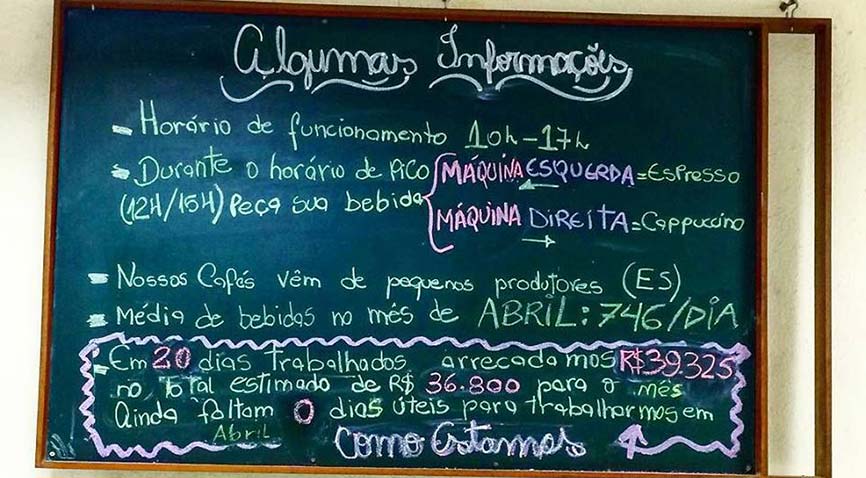 Algumas Informações
- Horário de funcionamento 10h-17h
- Durante o horário de Pico { MÁQUINA ESQUERDA = Espresso
(12H/15H) Peça sua bebida { MÁQUINA DIREITA = Cappuccino
- Nossos Cafés vêm de pequenos produtores (ES)
- Média de bebidas no mês de ABRIL: 746/DIA
- Em 20 dias trabalhados arrecadamos R$39.325
no total estimado de R$ 36.800 para o mês
Ainda faltam 0 dias úteis para trabalharmos em
Abril
como Estamos